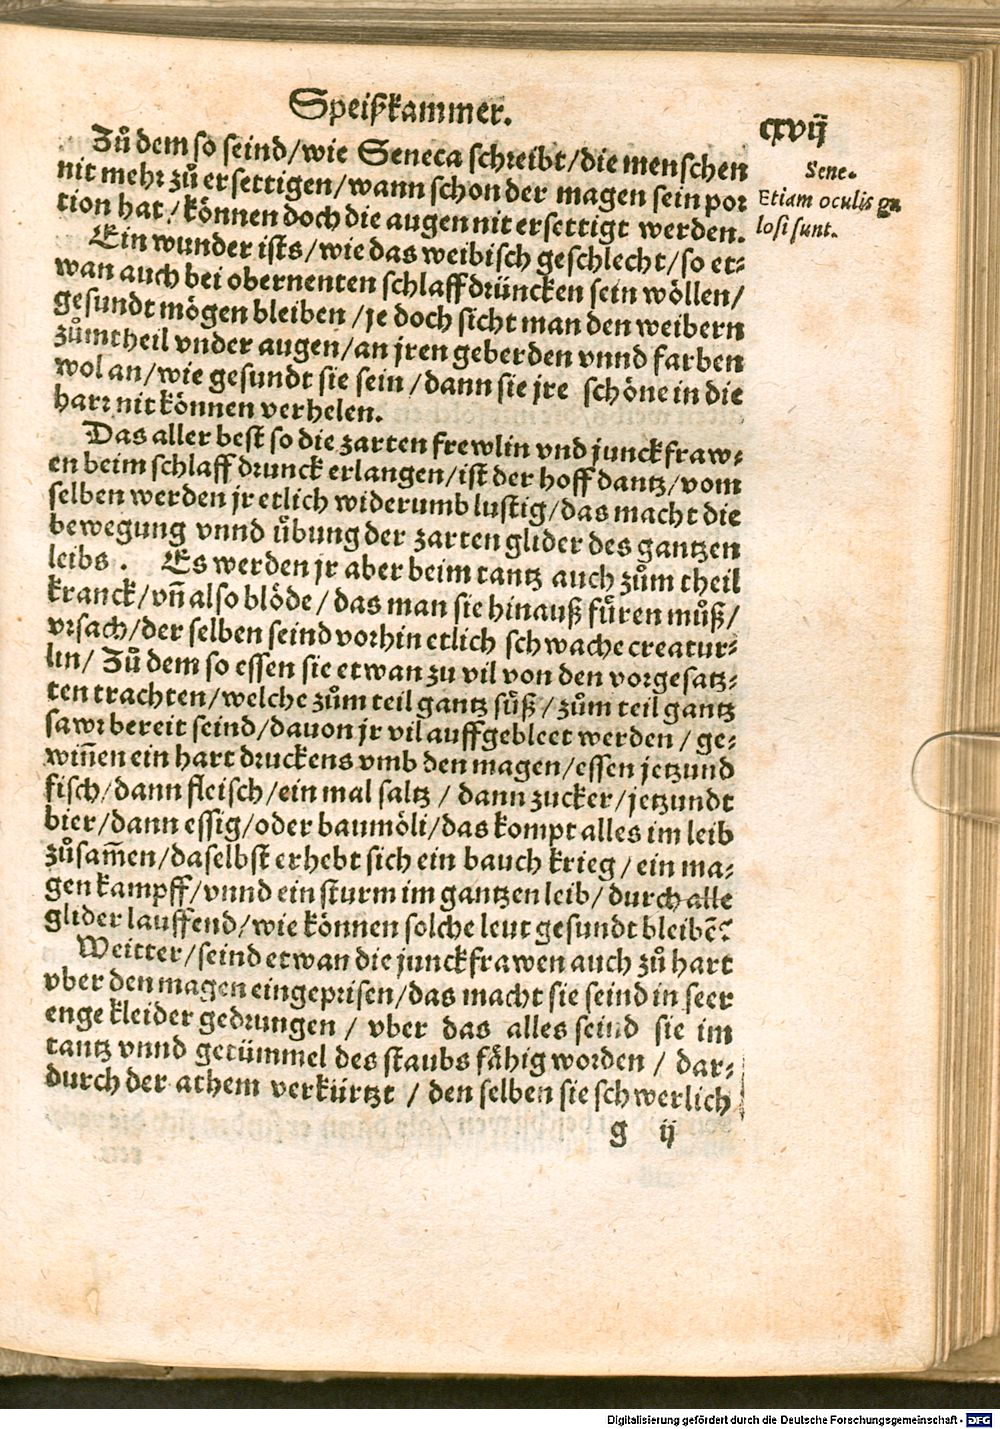 Speißkammer.
cxvij
Zů dem so seind/wie Seneca schreibt/die menschen
nit mehr zů ersettigen/wann schon der magen sein por
tion hat/können doch die augen nit ersettigt werden.
Sene.
Etiam oculis gu
losi sunt.
Ein wunder ists/wie das weibisch geschlecht/so et⸗
wan auch bei obernenten schlaffdrüncken sein wöllen/
gesundt mögen bleiben/je doch sicht man den weibern
zůmtheil vnder augen/an jren geberden vnnd farben
wol an/wie gesundt sie sein/dann sie jre schöne in die
harr nit können verhelen.
Das aller best so die zarten frewlin vnd junckfraw⸗
en beim schlaffdrunck erlangen/ist der hoff dantz/vom
selben werden jr etlich widerumb lustig/das macht die
bewegung vnnd übung der zarten glider des gantzen
leibs. Es werden jr aber beim tantz auch zům theil
kranck/vñ also blöde/das man sie hinauß füren můß/
vrsach/der selben seind vorhin etlich schwache creatur⸗
lin/Zů dem so essen sie etwan zu vil von den vorgesatz⸗
ten trachten/welche zům teil gantz sůß/zům teil gantz
sawr bereit seind/dauon jr vil auffgebleet werden/ge⸗
wiñen ein hart druckens vmb den magen/essen jetzund
fisch/dann fleisch/ein mal saltz/dann zucker/jetzundt
bier/dann essig/oder baumöli/das kompt alles im leib
zůsam̃en/daselbst erhebt sich ein bauch krieg/ein ma⸗
gen kampff/vnnd ein sturm im gantzen leib/durch alle
glider lauffend/wie können solche leut gesundt bleibẽ?
Weitter/seind etwan die junckfrawen auch zů hart
vber den magen eingeprisen/das macht sie seind in seer
enge kleider gedrungen/vber das alles seind sie im
tantz vnnd getümmel des staubs fähig worden/dar⸗
durch der athem verkürtzt/den selben sie schwerlich
g ij
Digitalisierung gefördert durch die Deutsche Forschungsgemeinschaft - DFG